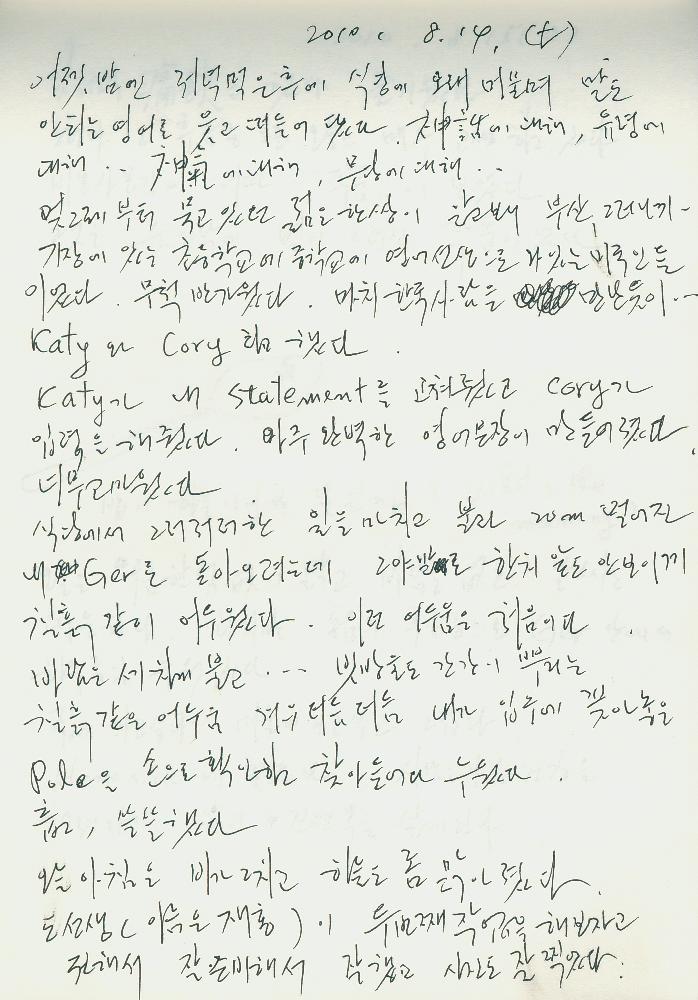 2010. 8. 14. (土)
어젯밤엔 저녁먹은후에 식당에 오래 머물며 말도
안되는 영어로 웃고 떠들어 댔다. 神話에 대해, 유령에
대해.. 神氣에 대해, 무당에 대해..
몇그레부터 묵고 있던 젊은 한쌍이 알고보니 부산, 그러니까-
기장에 있는 초등학교에 중학교에 영어선생으로 가 있는 미국인들
이었다. 무척 반가웠다. 마치 한국사람을 만난듯이...
Katy와 Cory라고 했다.
Katy가 내 statement를 고쳐줬고 Cory가
입력을 해줬다. 아주 완벽한 영어문장이 만들어졌다.
너무 고마웠다
식당에서 그러저러한 일을 마치고 불과 20m 떨어진
내 Ger로 돌아오려는데 그야말로 한치 앞도 안보이게
칠흑같이 어두웠다. 이런 어두움은 처음이다.
바람은 세차게 불고... 빗방울도 간간이 뿌리는
칠흑같은 어두움 겨우 더듬더듬 내가 입구에 꽂아놓은
Pole을 손으로 확인하고 찾아들어와 누웠다.
춥고, 쓸쓸했다
오늘 아침은 비가 그치고 하늘도 좀 맑아졌다.
도선생(이름은 재홍)이 두번째 작업을 해보자고
전해서 잘 준비해서 잘했고 사진도 잘 찍었다.